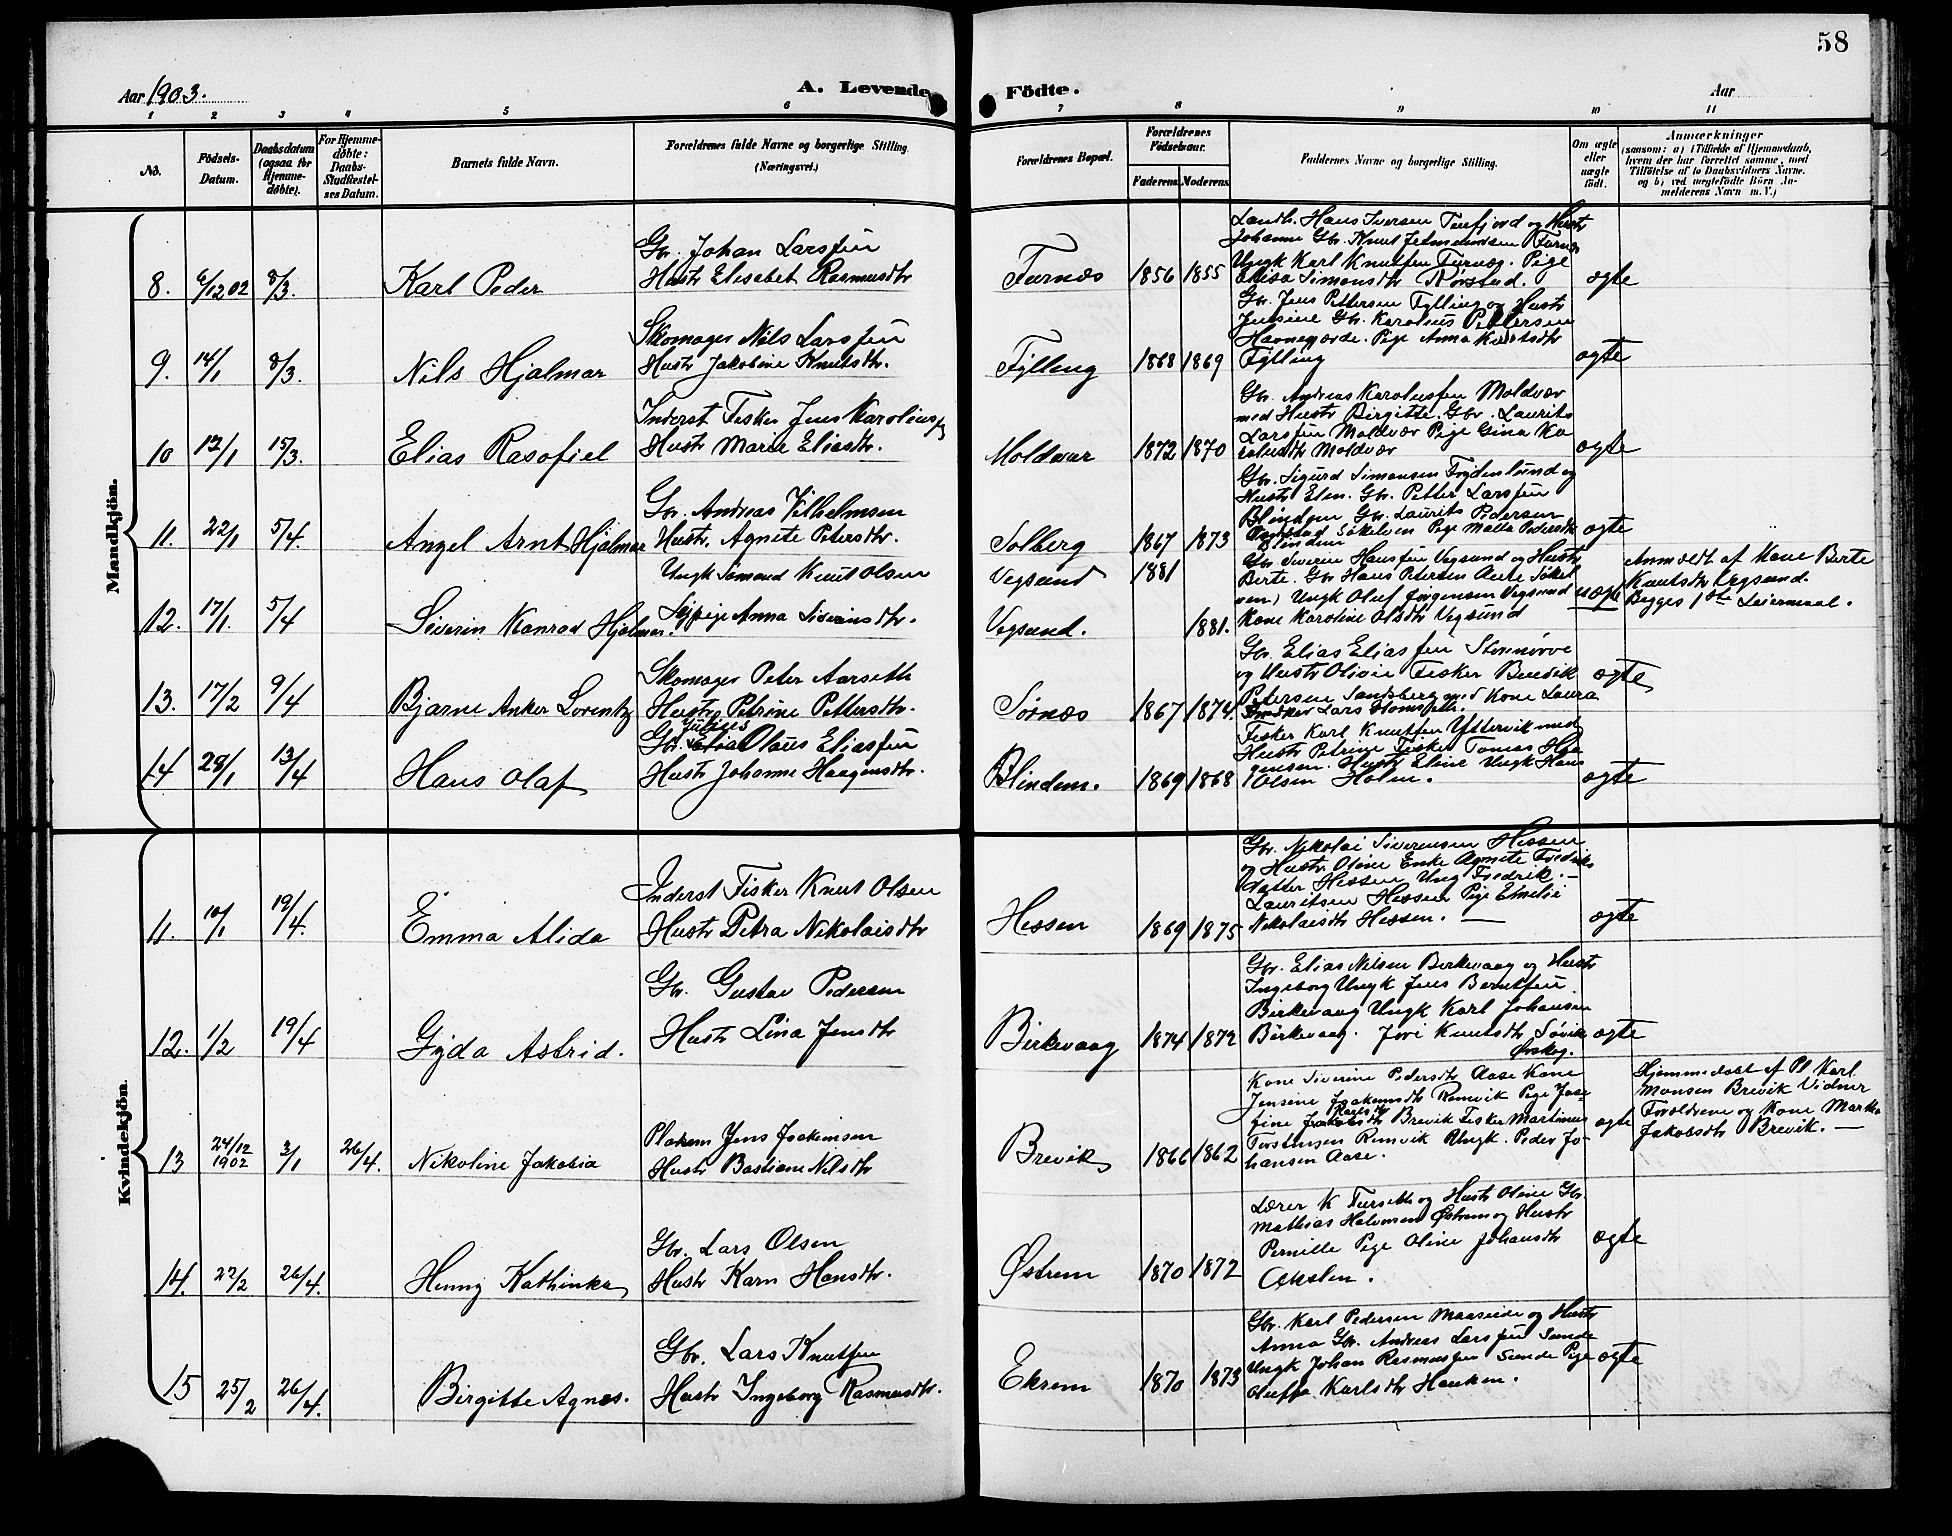 58
Aar 1903.
A. Levende Födte.
Aar
1 2 3 4 5 6 7 8 9 10 11
No.
Födsels-
Datum.
Daabsdatum
(ogsaa for
Hjemme-
døbte).
For Hjemme-
døbte:
Daabs-
Stadfæstel-
ses Datum.
Barnets fulde Navn.
Forældrenes fulde Navne og borgerlige Stilling
(Næringsvei.)
Forældrenes Bopæl.
Forældrenes
Födselsaar.
Faderens. Moderens.
Faddernes Navne og borgerlige Stilling.
Om ægte
eller
uægte
født.
Anmærkninger
(saasom: a) i Tilfælde af Hjemmedaab,
hvem der har forrettet samme, med
Tilföielse af to Daabsvidners Navne.
og b) ved uægtefödte Börn An-
melderens Navn m. V.)
Mandkjön.
8. 6/12 02 8/3. Karl Peder
Gbr. Johan Larssen
Hustr Elisabet Rasmusdtr
Furnæs 1856 1855
Landh. Hans Iversen Tuefjord og Hustr
Johanne Gbr. Knut Jetmundsen Furnæs
Ungk Karl Knutsen Furnæs. Pige
Elisa Simonsdtr Rörstad.
ægte
9. 14/1 8/3. Nils Hjalmar
Skomager Nils Larssen
Hustr Jakobine Knutsdtr.
Fylling 1868 1869
Gbr. Jens Pettersen Fylling og Hustr
Jensine Gbr. Karolius Pettersen
Havnegjærde. Pige Anna Knutsdtr
Fylling
ægte
10 12/1 15/3. Elias Rasofiel
Inderst Fisker Jens Karoliussen
Hustr Marie Eliasdtr.
Moldvær 1872 1870
Gbr. Andreas Karoliussen Moldvær
med Hustr Birgitte. Gbr. Laurits
Larssen Moldvær Pige Gina Ka
roliusdtr Moldvær
ægte
11. 22/1 5/4. Angel Arnt Hjalmar
Gbr. Andreas Vilhelmsen
Hustr. Agnete Petersdtr.
Solberg 1867 1873
Gbr. Sigurd Simonsen Frydenlund og
Hustr Elen. Gbr. Petter Larssen
Blindem Gbr. Laurits Pedersen
Sökelven Pige Malla Pedersdtr
Blindem
ægte
12. 17/1. 5/4 Siverin Konrad Hjalmar.
Ungk Sömand Knut Olsen
Pige Anna Siverinsdtr.
Vegsund 1881
Vegsund. 1881.
Gbr Siverin Hanssen Vegsund og Hustr
Berte. Gbr Hans Petersen Aure Sökel
ven) Ungk Oluf Jörgensen Vegsund
Kone Karoline Olsdtr Vegsund
uægte
Anmeldt af Kone Berte
Knutsdtr Vegsund.
Begges 1ste Leiermaal.
13. 17/2 9/4 Bjarne Anker Lorentz
Skomager Peter Aarseth
Hustr Petrine Pettersdtr.
Sörnæs 1867 1874.
Gbr. Elias Eliassen Stornörve
og Hustr Olivie Fisker Bendik
Petersen Sandsberg med Kone Laura
Lars
ægte
14 28/1 13/4 Hans Olaf
Julius
Gbr. Olaus Eliassen
Hustr Johanne Haagensdtr.
Blindem. 1869 1868
Fisker Karl Knutsen Yttervik med
Hustr Petrine Fisker Tomas Haa
gensen. Hustr Eline Ungk Hans
Olsen Holm.
ægte
Kvindekjön.
11. 10/1 19/4. Emma Alida
Inderst Fisker Knut Olsen
Hustr Petra Nikolaisdtr
Hessen 1869 1875
Gbr. Nikolai Siverinsen Hessen
og Hustr Oline Enke Agnete Fredriks
datter Hessen Ung Fredrik. —
Lauritsen Hessen Pige Emelie
Nikolaisdtr Hessen. —
ægte
12. 1/2 19/4 Gyda Astrid.
Gbr. Gustav Pedersen
Hustr Lina Jensdtr
Birkevaag 1874 1872
Gbr. Elias Nilsen Birkevaag og Hustr
Ingeborg Ungk Jens Berntsen
Birkevaag Ungk Karl Johansen
Birkevaag. Jori Knutsdtr Søvik
Ørskog.
ægte
13 24/12 1902 3/1 26/4. Nikoline Jakobia
Pladsm Jens Joakimsen
Hustr Bastiane Nilsdtr
Brevik 1866 1862
Kone Siverine Pedersdtr Aase Kone
Jensine Joakimsdtr Remvik Pige Jose
fine Brevik Fisker Martinus
Torstensen Remvik Ungk. Peder Jo-
hansen Aase.
ægte
Hjemmedøbt af Pl Karl
Monsen Brevik Vidner
Foreldrene og Kone Marta
Jakobsdtr Brevik. —
14. 22/2 26/4. Henny Kathinka
Gbr. Lars Olsen
Hustr Karn Hansdtr.
Østrem 1870 1872
Lærer K Furseth og Hustr Oline Gbr.
Mathias Halvorsen Østrem og Hustr
Pernille Pige Oline Johansdtr
Akslen.
ægte
15 25/2 26/4. Birgitte Agnes.
Gbr. Lars Knutsen
Hustr Ingeborg Rasmusdtr.
Ekrem 1870 1873
Gbr. Karl Pedersen Maaseide og Hustr
Anna Gbr. Andreas Larssen Sunde
Ungk Johan Rasmussen Sunde Pige
Oluffa Karlsdtr Hauken.
ægte